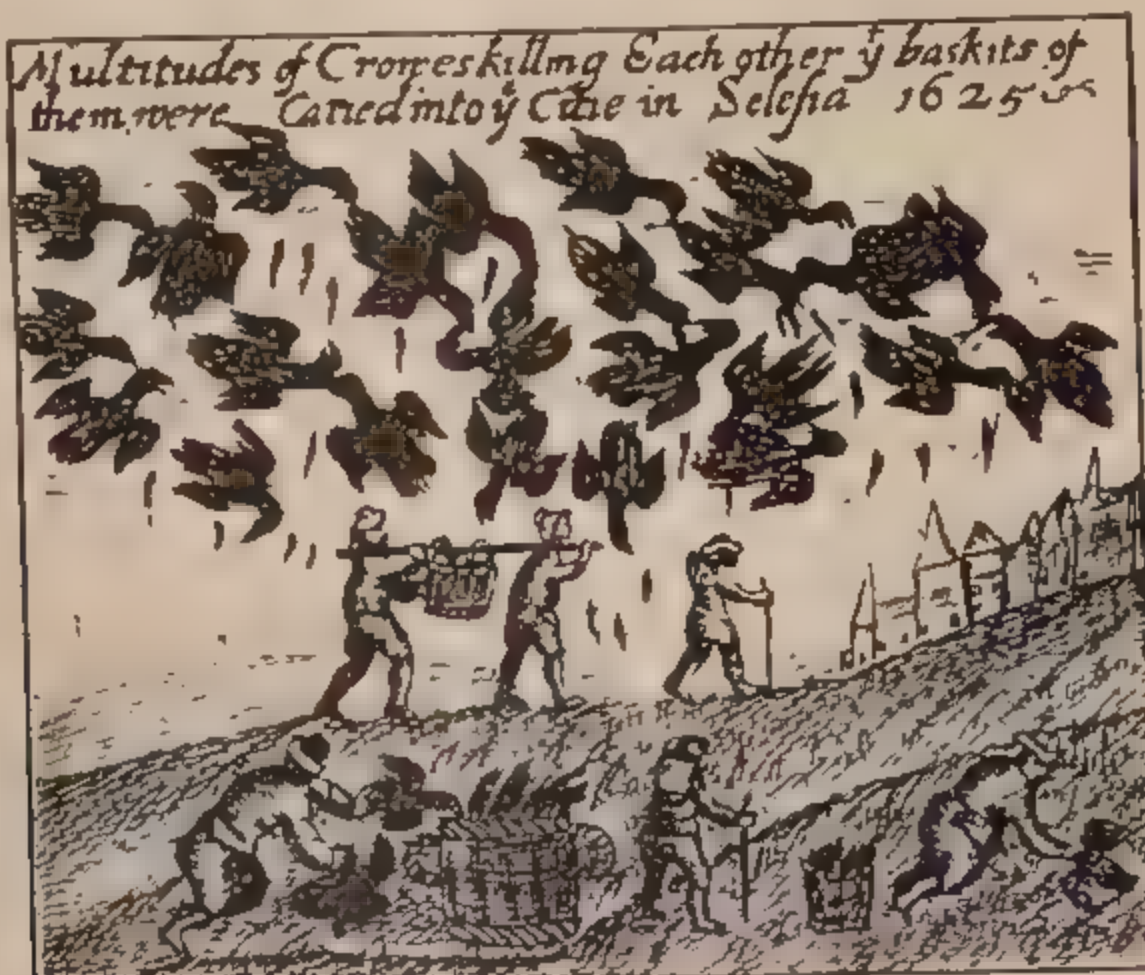 Multitudes of Crowes killing Each other yͭ baskits of
them were Caried into yͤ Citie in Selesia 1625